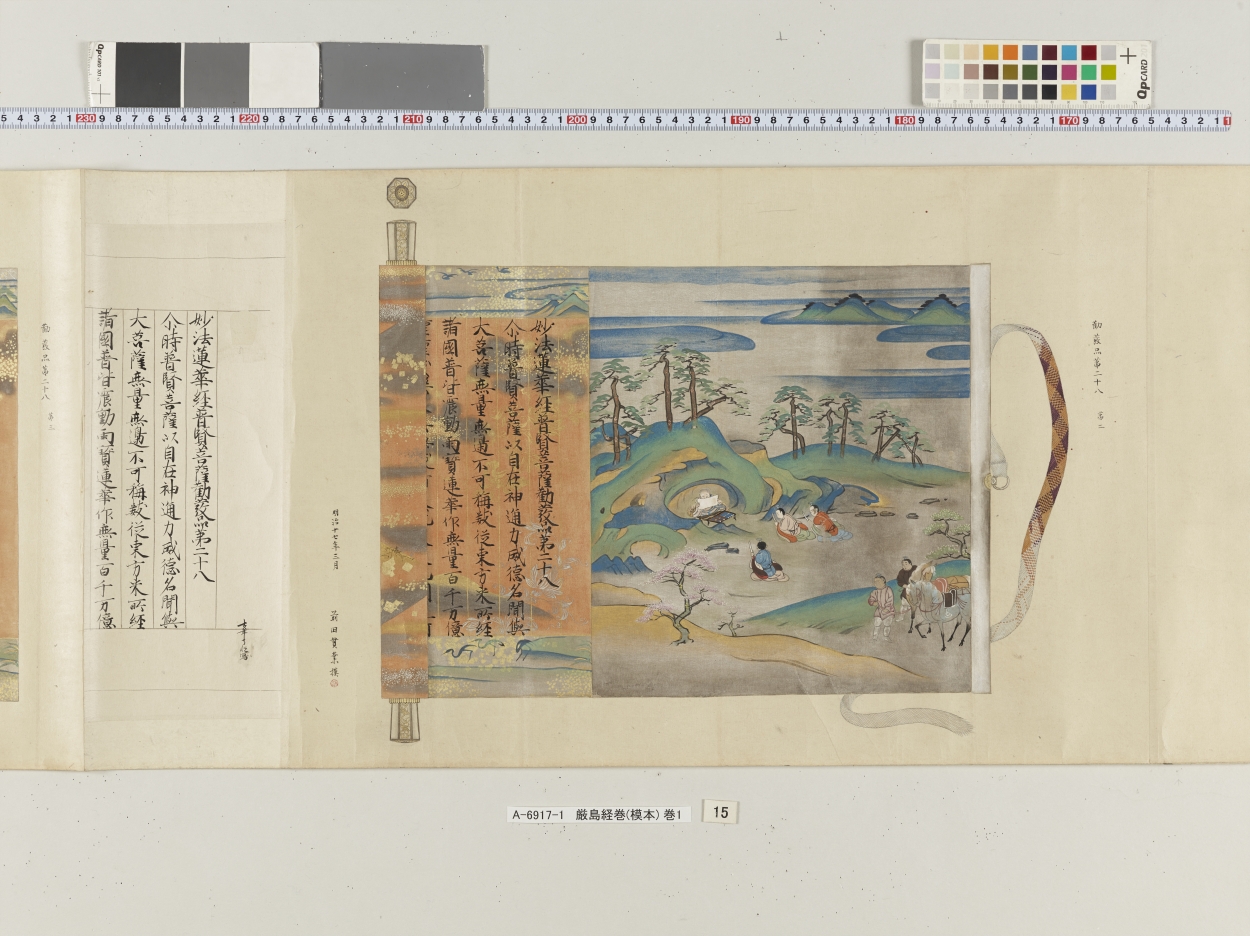 QpCARD 201
QpCARD
5 4 3 2 1 230 9 8 7 6 5 4 3 2 1 220 9 8 7 6 5 4 3 2 1 210 9 8 7 6 5 4 3 2 1 200 9 8 7 6 5 4 3 2 1 190 9 8 7 6 5 4 3 2 1 180 9 8 7 6 5 4 3 2 1 170 9 8 7 6 5 4 3 2 1 1
勧發品第二十八 第二
妙法蓮華經普賢菩薩勧發品第二十八
尒時普賢菩薩以自在神通力威德名聞與
大菩薩無量無邊不可稱數從東方来所經
諸國普皆震動雨寳蓮華作無量百千万億
明治十七年三月
前田貫業模
妙法蓮華經普賢菩薩勧發品第二十八
尒時普賢菩薩以自在神通力威德名聞與
大菩薩無量無邊不可稱數從東方来所經
諸國普皆震動雨寳蓮華作無量百千万億
勧發品第二十八 第三
A-6917-1 厳島経巻(模本) 巻1
15